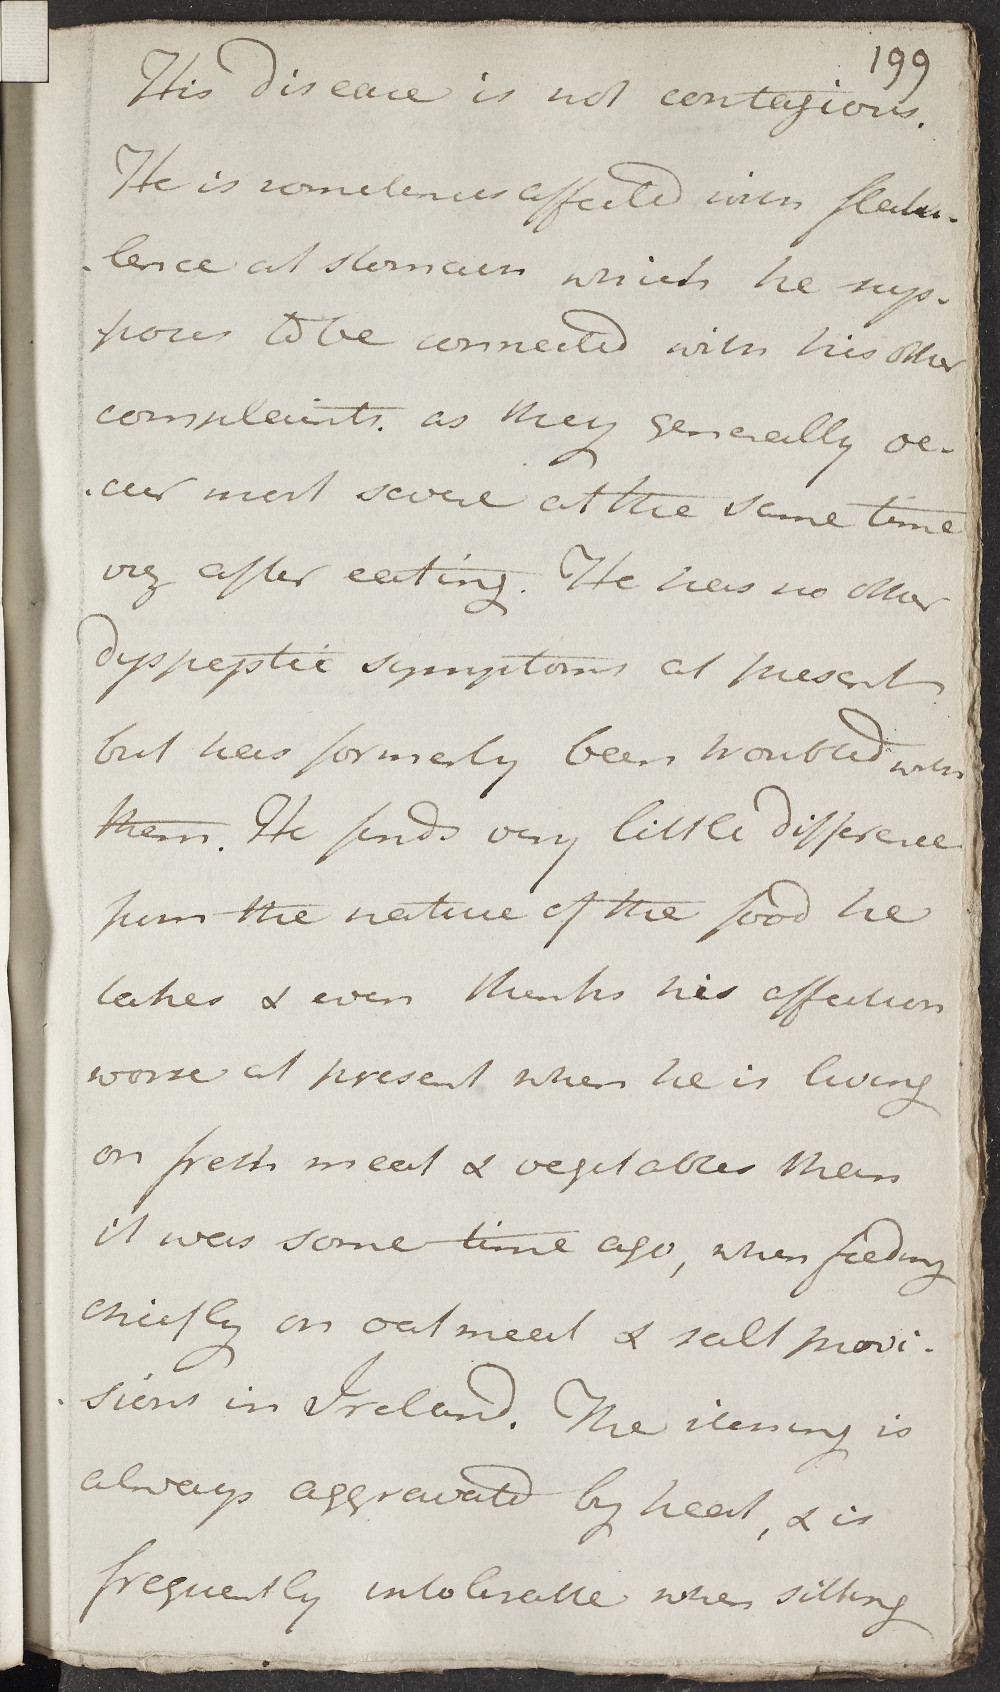 199
His disease is not contagious.
He is sometimes affected with flatu-
-lence at stomach which he sup-
-poses to be connected with his other
complaints. as they generally oc-
-cur most severe at the same time
viz after eating. He has no other
dyspeptic symptoms at present
but has formerly been troubled with
them. He finds very little difference
from the nature of the food he
takes & even thinks his affection
worse at present when he is living
on fresh meat & vegetables than
it was some time ago, when feeding
chiefly on oatmeal & salt provi-
-sions in Ireland. The itching is
always aggravated by heat, & is
frequently intolerable when sitting